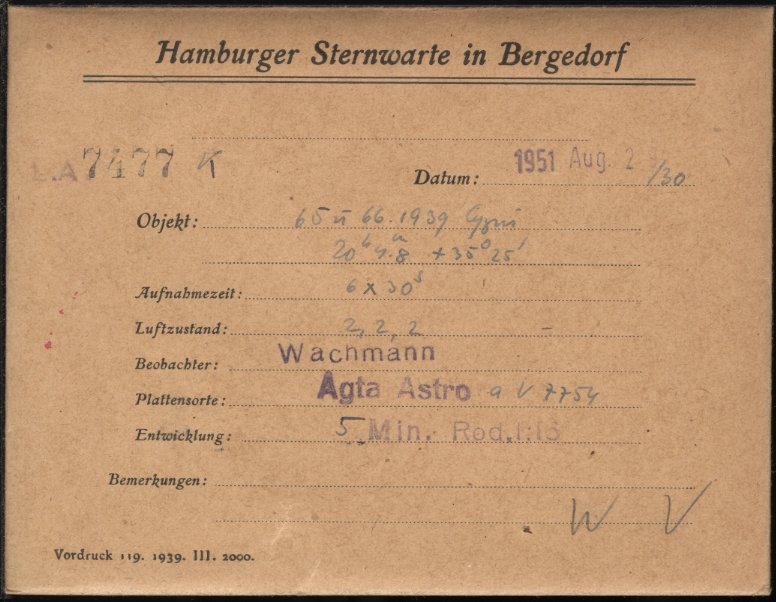 Hamburger Sternwarte in Bergedorf
L.A 7477 K
Datum: 1951 Aug. 29/30
Objekt: 65 u 66.1939 Cygni
20ʰ 4.ᵐ8 +35° 25'
Aufnahmezeit: 6 x 30ˢ
Luftzustand: 2, 2, 2 –
Beobachter: Wachmann
Plattensorte: Agfa Astro a V 7754
Entwicklung: 5 Min. Rod. 1:18
Bemerkungen:
W V
Vordruck 119. 1939. III. 2000.